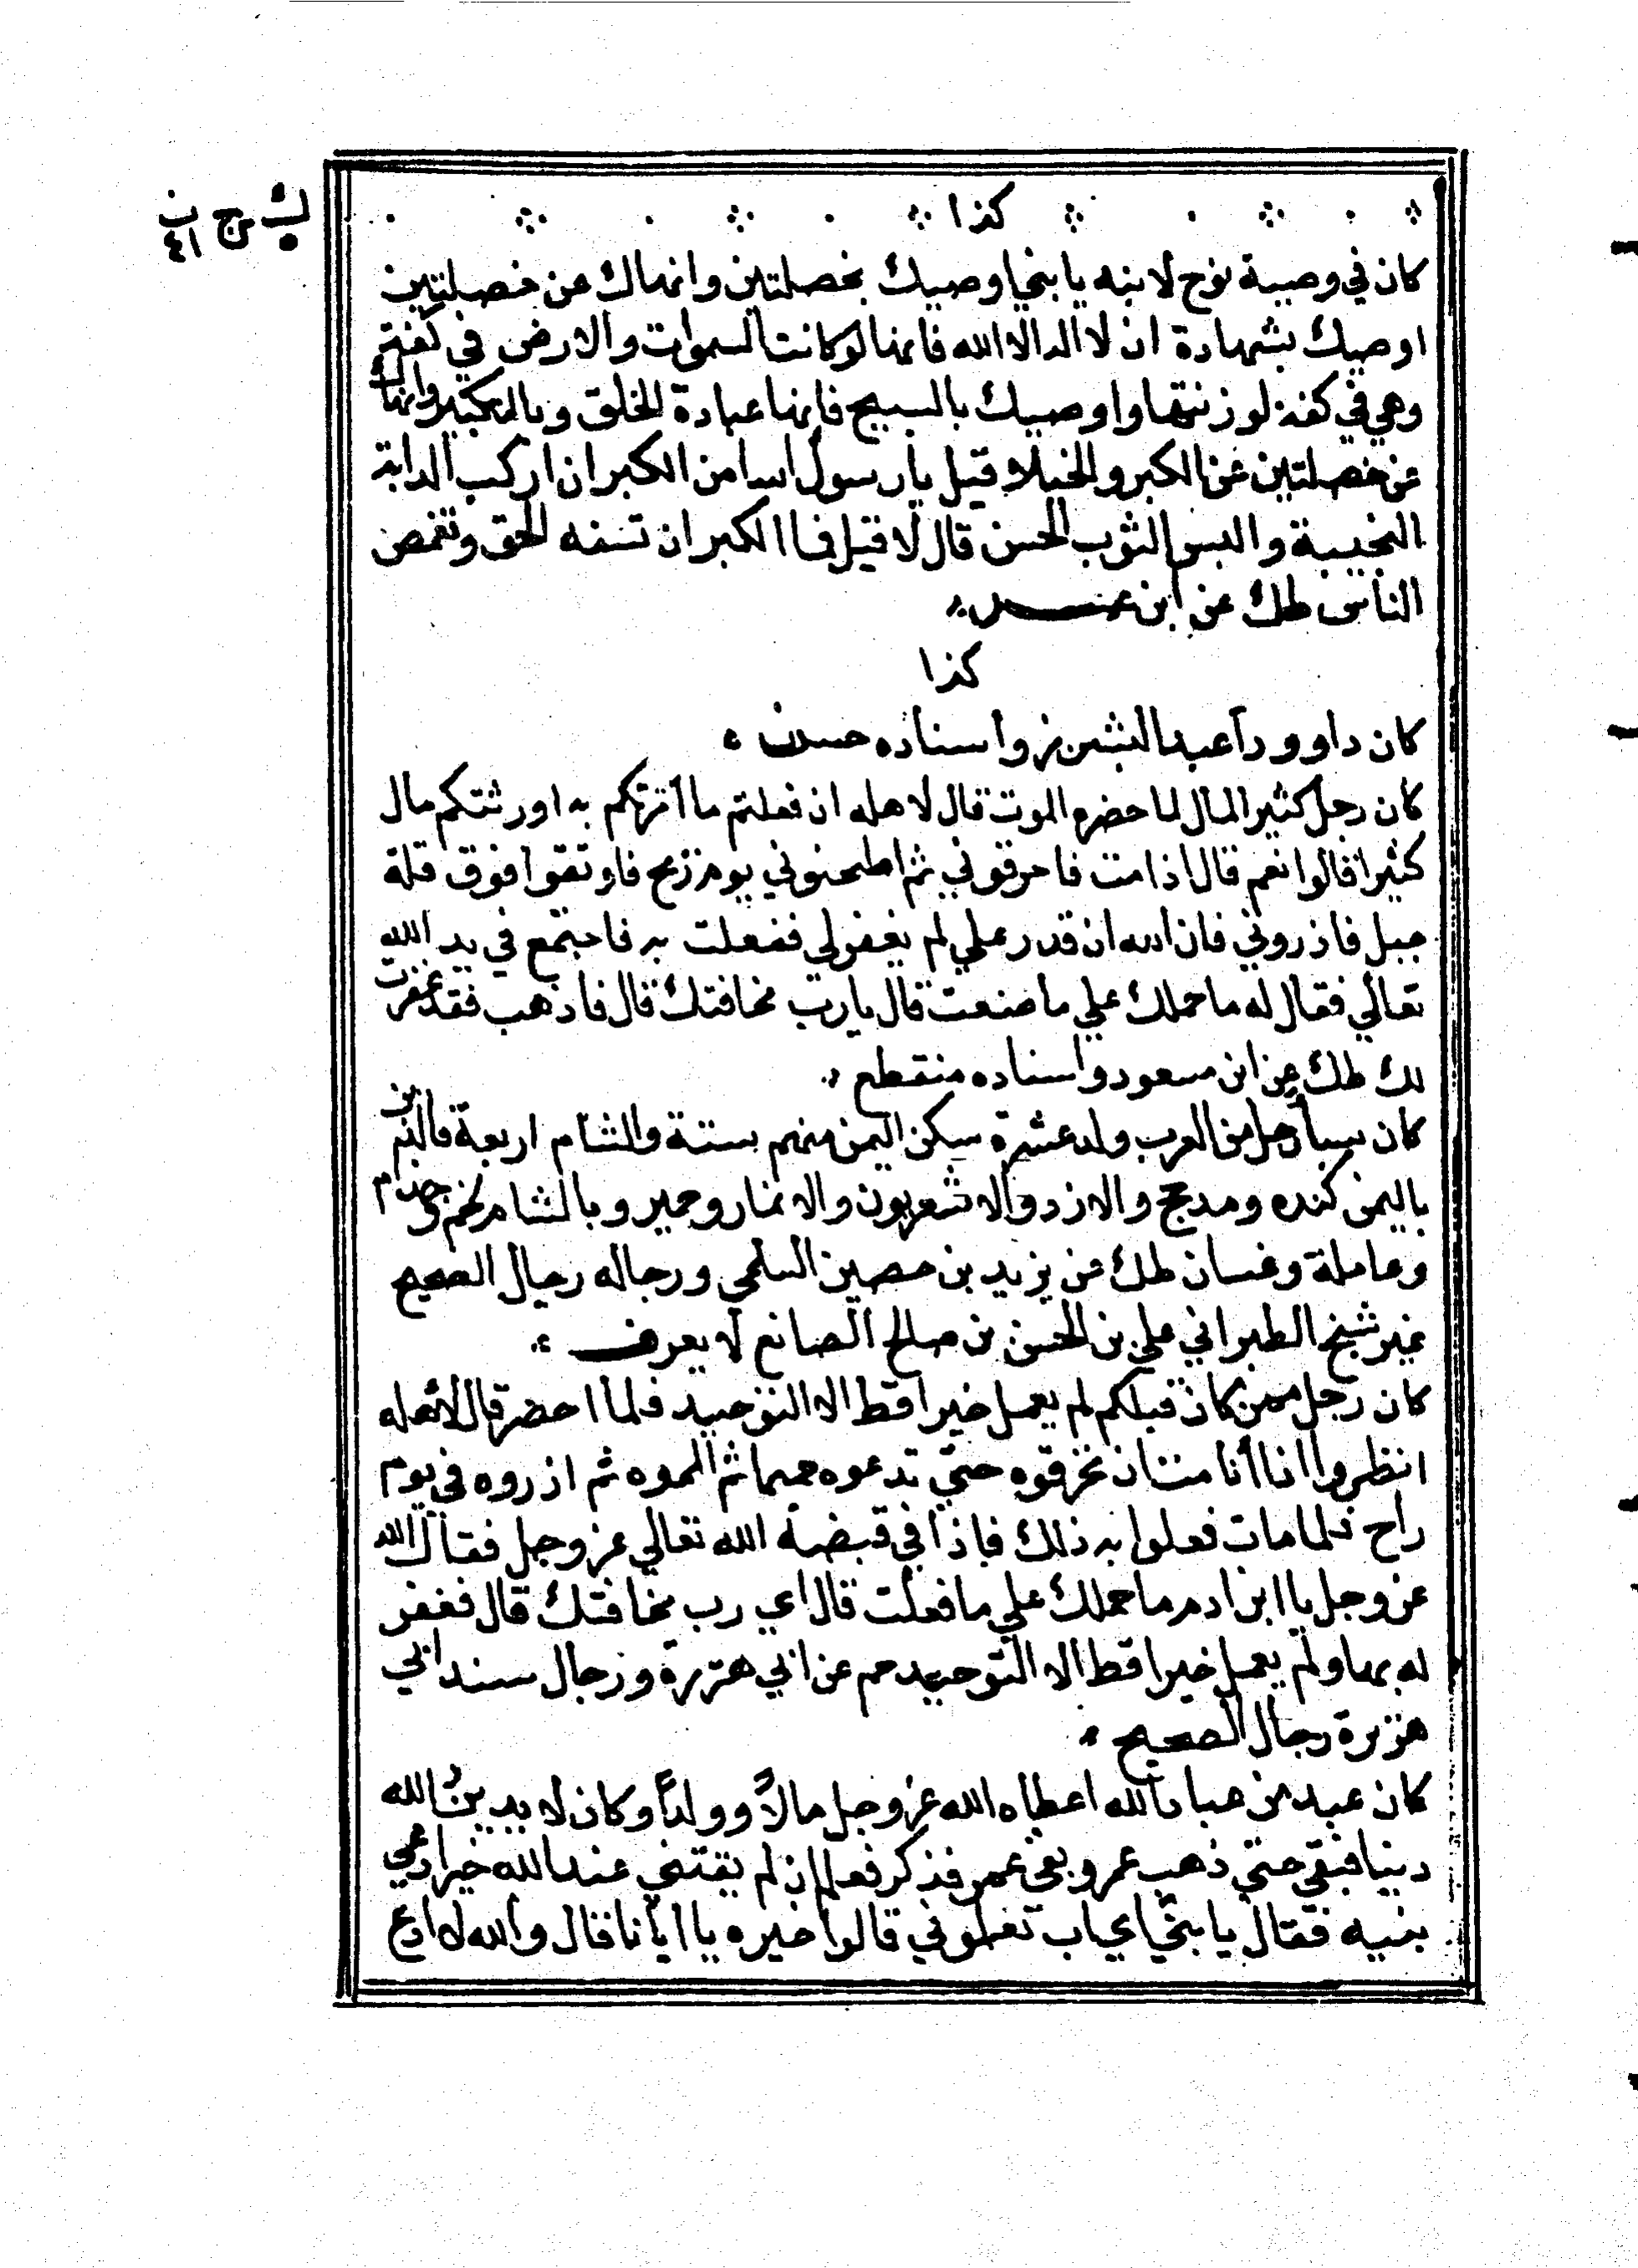 كذا
كان في وصية نوح لابنه يا بني اوصيك بخصلتين وانهاك عن خصلتين
اوصيك بشهادة ان لا اله الا الله فانها لو كانت السموات والارض في كفة
وهي في كفة لوزنتها واوصيك بالتسبيح فانها عبادة الخلق وبالتكبير وانهاك
عن خصلتين عن الكبر والخيلاء قيل يا رسول الله امن الكبر ان اركب الدابة
النجيبة والبس الثوب الحسن قال لا قيل فما الكبر ان تسفه الحق وتغمص
الناس طك عن ابن عمر
كذا
كان داوود اعبد البشر بز واسناده حسن
كان رجل كثير المال لما حضره الموت قال لاهله ان فعلتم ما امرتكم به اورثتكم مال
كثيرا قالوا نعم قال اذا مت فاحرقوني ثم اطحنوني يوم ريح فارتقوا فوق قلة
جبل فاذروني فان الله ان قدر علي لم يغفر لي ففعلت به فاجتمع في يد الله
تعالي فقال له ما حملك علي ما صنعت قال يا رب مخافتك قال فاذهب فقد غفرت
لك طك عن ابن مسعود واسناده منقطع
كان سبأ رجل من العرب ولد عشرة سكن اليمن منهم ستة والشام اربعة فالذين
باليمن كنده ومدحج والازد والاشعريون والانمار وحمير وبالشام لخم وجذام
وعاملة وغسان طك عن يزيد بن حصين السلمي ورجاله رجال الصحيح
غير شيخ الطبراني علي بن الحسن بن صالح الصانع لا يعرف
كان رجل ممن كان قبلكم لم يعمل خيرا قط الا التوحيد فلما احضر قال لاهله
انظروا انا انا مت ان تحرقوه حتي تدعوه حمما ثم المموه ثم اذروه في يوم
راح فلما مات فعلوا به ذلك فاذا في قبضة الله تعالي عز وجل فقال الله
عز وجل يا ابن ادم ما حملك علي ما فعلت قال اي رب مخافتك قال فغفر
له بها ولم يعمل خيرا قط الا التوحيد حم عن ابي هريرة ورجال سند ابي
هريرة رجال الصحيح
كان عبد من عباد الله اعطاه الله عز وجل مالا وولدا وكان لا يدين الله
دينا فبقي حتي ذهب عمر وبقي عمر فذكر فعلم ان لم يقتني عند الله خيرا دعي
بنيه فقال يا بني اي اب تعلموني قالوا خيره يا ابانا قال والله لا ادع